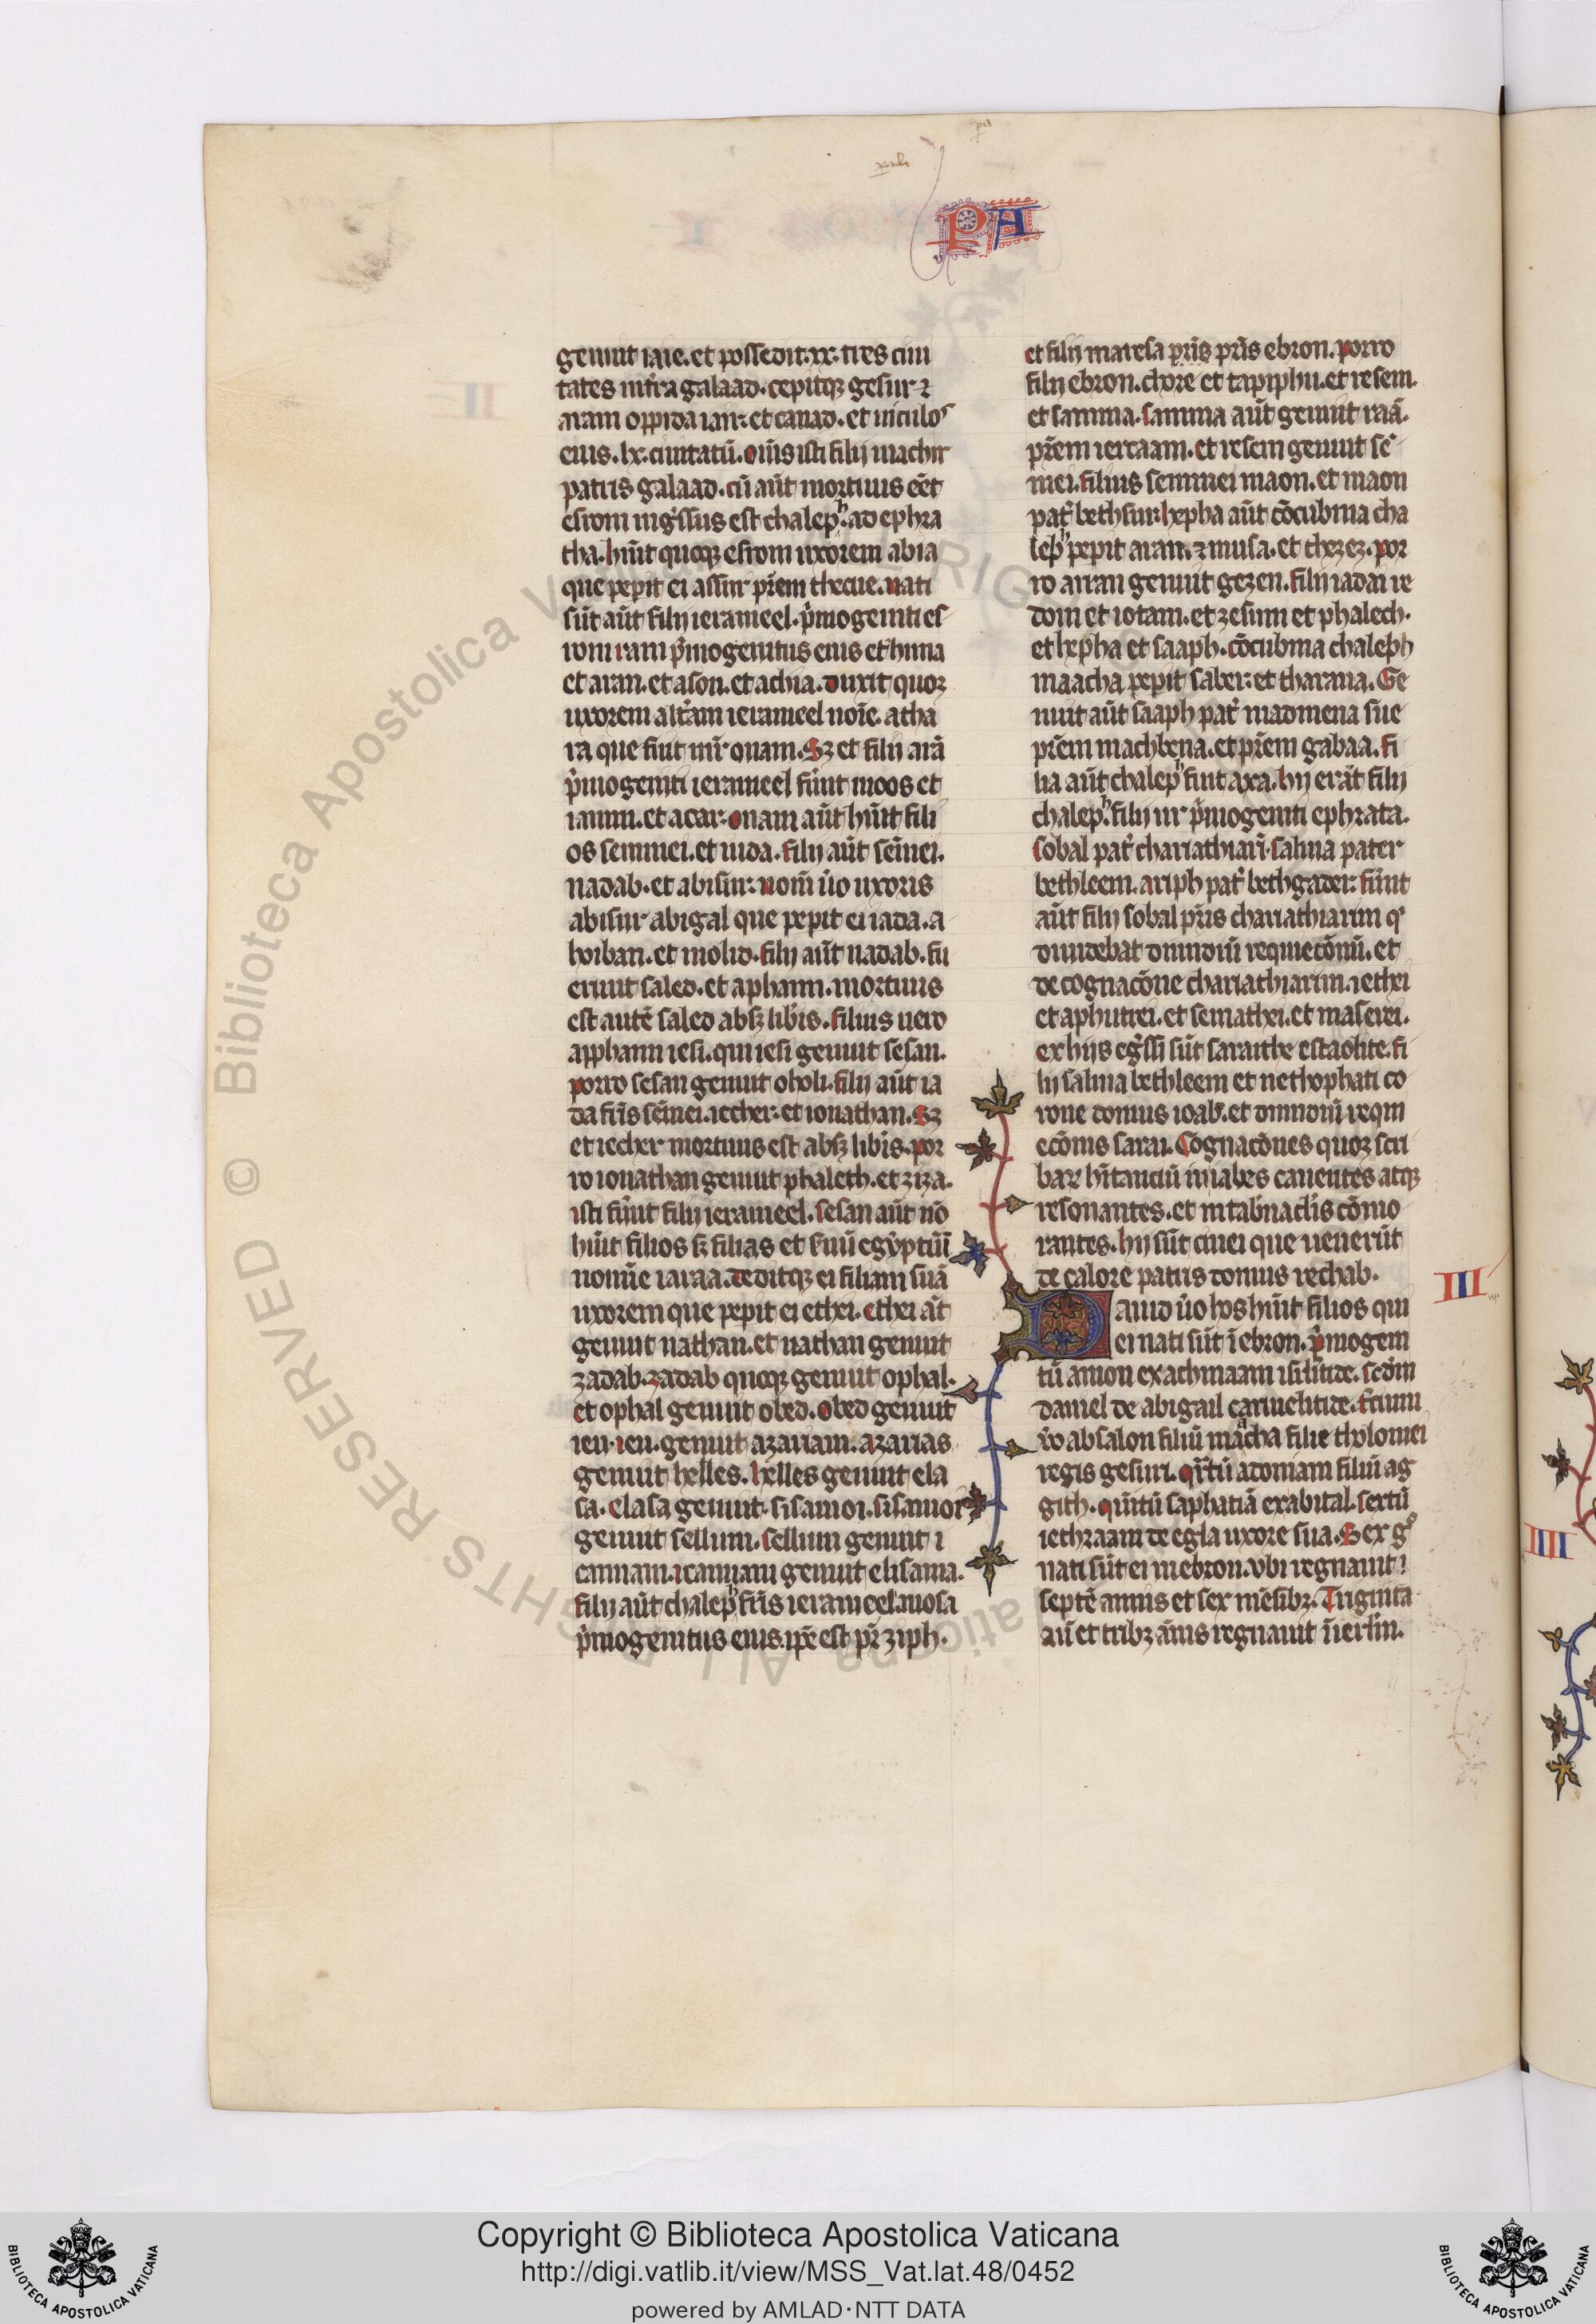 pa
parali
PA
genuit iaie. et possedit. xx. tres ciui
tates in tr̃a galaad. cepitqꝫ gesur ⁊
aram oppida iair. et canad. et uiculos
eius. lx. ciuitatũ. oм̃s isti filij machir
patris galaad. cũ aũt mortuus eẽt
esrom ingr̃ssus est chaleph. ad ephra
tha. hũit quoqꝫ esrom uxorem abia
que peperit ei assur pr̃em thecue. nati
sũt aũt filij ierameel. p̃mogeniti es
rom ram p̃mogenitus eius et buna
et aran. et ason. et achia. duxit quoqꝫ
uxorem alt̃am ierameel noĩe. atha
ra que fuit mr̃ onam. Sꝫ et filij arã
p̃mogeniti ierameel fũnt moos et
iamin. et acar. onam aũt hũit fili
os semmei. et iuda. filij aũt sẽmei.
nadab. et abisur. nom̃ ũo uxoris
abisur abigal que peperit ei iada. a
hoiban. et molid. filij aũt nadab. fu
erunt saled. et aphaim. mortuus
est autẽ saled absqꝫ libĩs. filius uero
apphaim iesi. qui iesi genuit sesan.
porro sesan genuit oholi. filij aũt ia
da fr̃is sẽmei. iecher. et ionathan. Sꝫ
et iecher mortuus est absqꝫ libĩs. por
ro ionathan genuit phaleth. et ziza.
isti fũnt filij ierameel. sesan aũt nõ
hũit filios sꝫ filias et s̃uũ egyptiũ
nomĩe iaraa. deditqꝫ ei filiam suã
uxorem que peperit ei ethei. ethei aũt
genuit nathan. et nathan genuit
zadab. zadab quoqꝫ genuit ophal.
et ophal genuit obed. obed genuit
ieu. ieu. genuit azariam. azarias
genuit helles. helles genuit ela
sa. elasa genuit. sisamoi. sisamoi
genuit sellum. sellum genuit i
camiam. icamiam genuit elisama.
filij aũt chaleph fr̃is ierameel. mosa
p̃mogenitus eius. ip̃e est pr̃ ziph.
et filij maresa pr̃is pr̃is ebron. porro
filij ebron. chore et tapiphu. et resem.
et samma. samma aũt genuit raã.
pr̃em iercaam. et resem genuit se
mei. filius semmei maon. et maon
pat̃ bethsur. hepha aũt cõcubina cha
leph peperit aran. ⁊ musa. et thezez. por
ro arran genuit gezen. filij iadai re
dom et iotam. et zesum et phalech.
et hepha et saaph. cõcubina chaleph
maacha peperit saber. et tharana. Ge
nuit aũt saaph pat̃ madmena sue
pr̃em machbena. et pr̃em gabaa. fi
lia aũt chaleph fuit axa. hij erãt filij
chaleph. filij ur p̃mogeniti ephrata.
sobal pat̃ chariathiarĩ. salma pater
bethleem. ariph pat̃ bethgader. fũnt
aũt filij sobal pr̃is chariathiarim q̃
diuidebat dimidiũ requiecõnũ. et
de cognacõne chariathiarim. iethei
et aphutei. et semathei. et maserei.
ex hijs egr̃ssi sũt saraithe estaolite. fi
lij salma bethleem et nethophati co
rone domus ioab. et dimidiũ requi
ecõnis sarai. Cognacõnes quoqꝫ scri
baꝝ hĩtanciũ ĩ iabes canentes atqꝫ
resonantes. et in tab̃naclis cõmo
rantes. hij sũt cinei que uenerũt
de calore patris domus rechab.
III
Dauid ũo hos hũit filios qui
ei nati sũt ĩ ebron. p̃mogeni
tũ amon ex achinaam israhelitide. scd̃m
daniel de abigail carmelitide. tc̃ium
ũo absalon filiũ maacha filie tholomei
regis gesuri. qr̃tũ adomam filiũ ag
gith. quĩtũ saphatiã ex abital. sextũ
iethraam de egla uxore sua. Sex gͦ
nati sũt ei in ebron. vbi regnauit
septẽ annis et sex mẽsibꝫ. Triginta
aũ et tribꝫ ãnis regnauit ĩ ierl̃m.
IIII
© Biblioteca Apostolica Vaticana ALL RIGHTS RESERVED
Copyright © Biblioteca Apostolica Vaticana
http://digi.vatlib.it/view/MSS_Vat.lat.48/0452
powered by AMLAD·NTT DATA
BIBLIOTECA APOSTOLICA VATICANA
BIBLIOTECA APOSTOLICA VATICANA